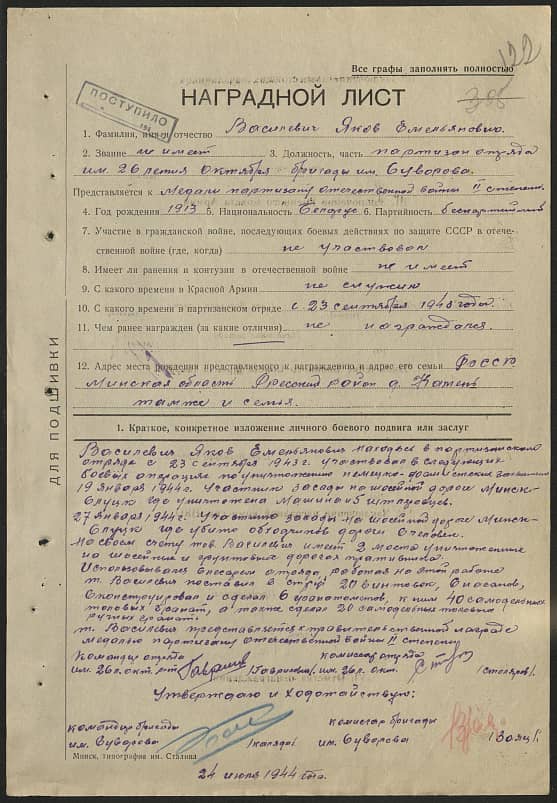 122
Все графы заполнять полностью
395
ПОСТУПИЛО
194
НАГРАДНОЙ ЛИСТ
1. Фамилия, имя и отчество Василевич Яков Емельянович
2. Звание не имеет 3. Должность, часть партизан отряда
им. 26 летия октября бригады им. Суворова.
Представляется к Медали партизану отечественной войны II степени.
4. Год рождения 1913 5. Национальность белорус 6. Партийность беспартийный
7. Участие в гражданской войне, последующих боевых действиях по защите СССР в отече-
ственной войне (где, когда) не участвовал
8. Имеет ли ранения и контузии в отечественной войне не имеет
9. С какого времени в Красной Армии не служил
10. С какого времени в партизанском отряде с 23 сентября 1943 года.
11. Чем ранее награжден (за какие отличия) не награждался.
12. Адрес места рождения представляемого к награждению и адрес его семьи БССР
Минская область район д. Камень
там же и семья.
ДЛЯ ПОДШИВКИ
1. Краткое, конкретное изложение личного боевого подвига или заслуг
Василевич Яков Емельянович находясь в партизанском
отряде с 23 сентября 1943 г. участвовал в следующих
боевых операциях по уничтожению немецко-фашистских
19 января 1944 г. Участник засады на шосейной дороге Минск-
Слуцк где уничтожена машина и 6 штурмовцев.
27 января 1944 г. Участник засады на шосейной дороге Минск-
Слуцк где убито обходчиков дороги 8 человек.
На своем счету тов. Василевич имеет 2 моста уничтоженные
на шосейных и грунтовых дорогах противника.
Использовался слесарем отряда, работая на этой работе
т. Василевич поставил в строй 20 винтовок,
сконструировал и сделал 6 к ним 40 самодельных
толовых гранат, а также сделал 20 самодельных толовых
ручных гранат.
т. Василевич представляется к правительственной награде
медалью партизану отечественной войны II степени
Командир отряда комиссар отряда
им. 26 л. окт. им. 26 л. окт. /Столяров/
Утверждаю и Ходотайствую:
командир бригады комиссар бригады
им. Суворова им. Суворова /Заяц/.
Минск, типография им. Сталина
24 июля 1944 г.